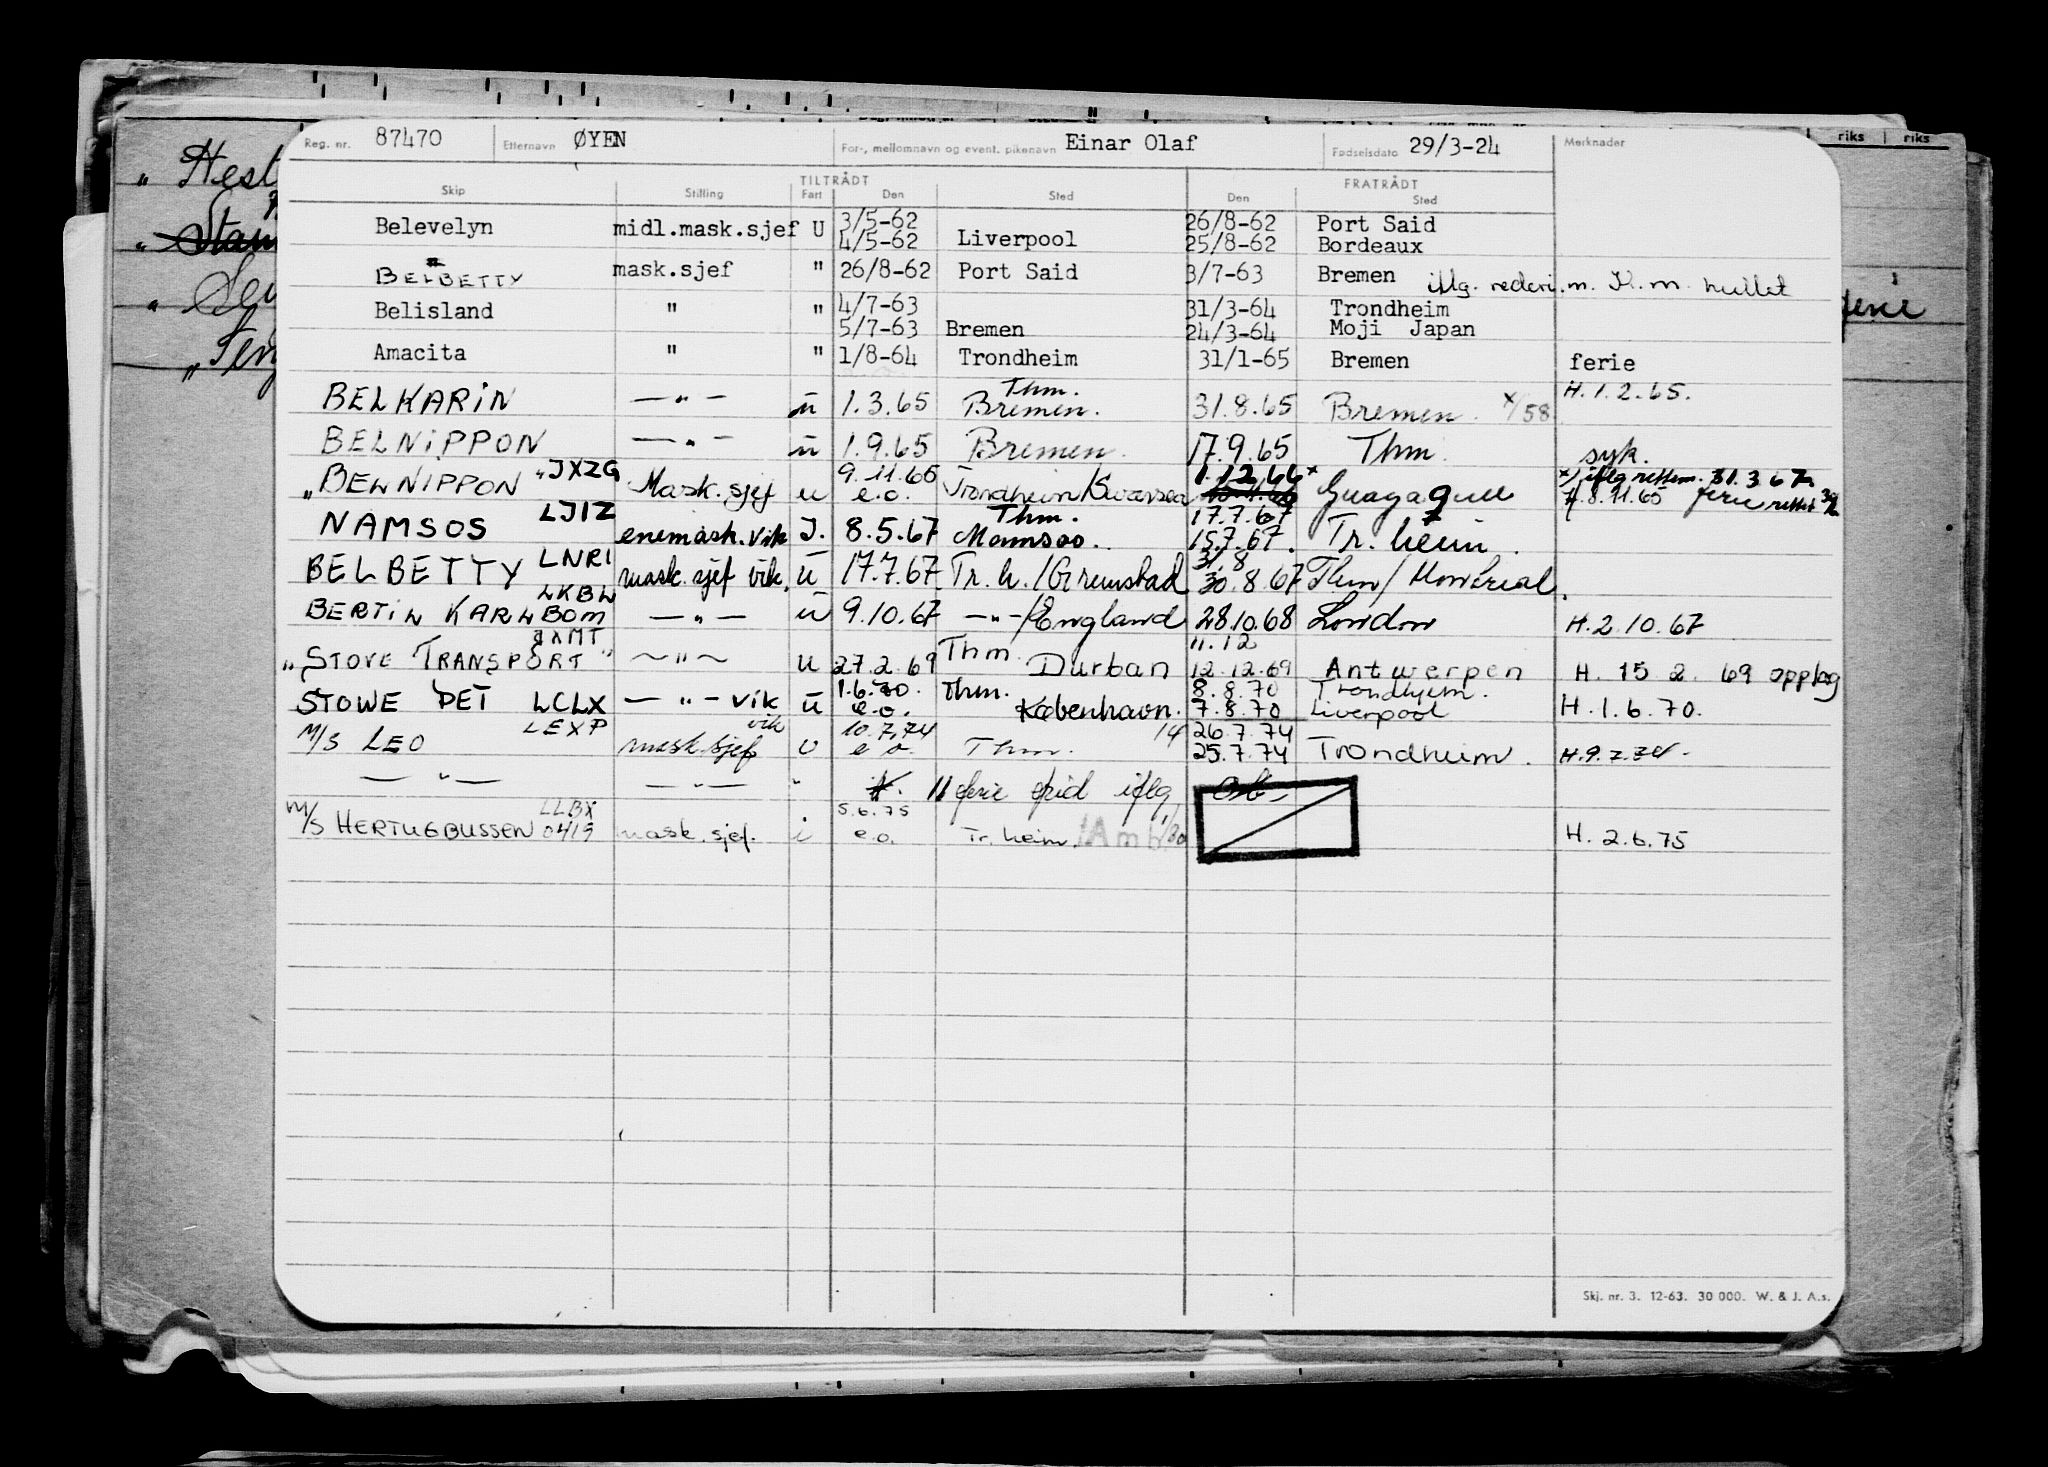 riks riks
Reg. nr. 87470 Etternavn ØYEN For-, mellomnavn og event. pikenavn Einar Olaf Fødselsdato 29/3-24 Merknader
TILTRÅDT FRATRÅDT
Skip Stilling Fart Den Sted Den Sted
3/5-62 26/8-62 Port Said
Belevelyn midl.mask.sjef U 4/5-62 Liverpool 25/8-62 Bordeaux
BELBETTY mask.sjef " 26/8-62 Port Said 3/7-63 Bremen iflg. rederi.m. K.m. hullet
4/7-63 31/3-64 Trondheim
Belisland " " 5/7-63 Bremen 24/3-64 Moji Japan
Amacita " " 1/8-64 Trondheim 31/1-65 Bremen ferie
Thm. H.1.2.65.
BELKARIN — " — u 1.3.65 Bremen. 31.8.65 Bremen. x/58
BELNIPPON — " — u 1.9.65 Bremen. 17.9.65 Thm. syk.
"BELNIPPON" JXZG Mask.sjef u 9.11.65 e.o. Trondheim/Swansea 1.12.66 x Guayaquil x) iflg rettem. 31.3.67
H.8.11.65 ferie rettet
NAMSOS LJIZ enemask.vik J. 8.5.67 Thm. Namsos. 17.7.67 15.7.67. Tr.heim.
BELBETTY LNRI mask.sjef vik. u 17.7.67 Tr.h./Grimstad 31/8 30.8.67 Thm/Montreal.
BERTIL KARLBOM LKBL — " — u 9.10.67 — " —/England 28.10.68 London H.2.10.67
"STOVE TRANSPORT" JXMT — " — u 27.2.69 Thm. Durban 11.12 12.12.69 Antwerpen H. 15 2. 69 opplag
STOWE PET LCLX — " — vik u 1.6.70. e.o. Thm. København. 8.8.70 Trondhjem. 7.8.70 Liverpool H.1.6.70.
M/S LEO LEXP mask.sjef vik U 10.7.74 e o. Thm. 26.7.74 25.7.74 Trondheim. H.9.7.74.
— " — — " — " ferie iflg,
M/S HERTUGBUSSEN LLBX 0419 mask.sjef. i 5.6.75 e.o. Tr.heim. H.2.6.75
Skj. nr. 3. 12-63. 30 000. W. & J. A.s.